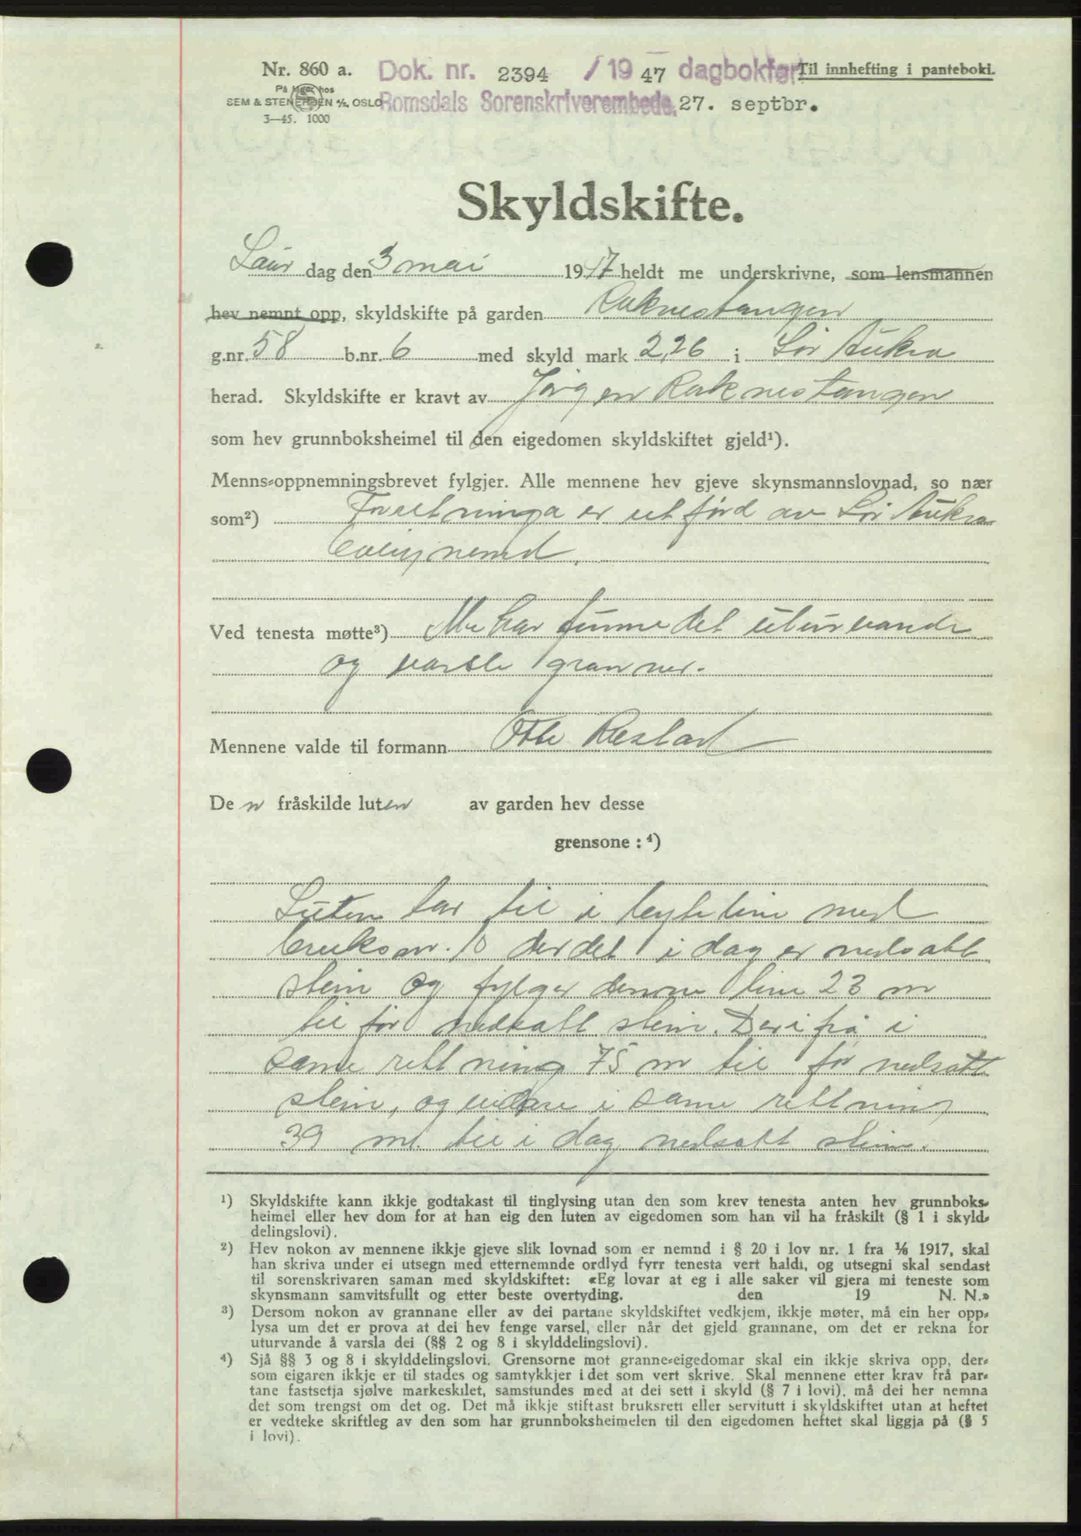 Nr. 860 a.
Dok. nr. 2394 / 19 47 dagbokført
Til innhefting i panteboki.
På lager hos
SEM & STENERSEN A/S, OSLO
Romsdals Sorenskriverembede, 27. septbr.
3—45. 1000
Skyldskifte.
Laur dag den 3 mai 1947 heldt me underskrivne, som lensmannen
hev nemnt opp, skyldskifte på garden Raknestangen
g.nr. 58 b.nr. 6 med skyld mark 2,26 i Sør Aukra
herad. Skyldskifte er kravt av Jörgen Raknestangen
som hev grunnboksheimel til den eigedomen skyldskiftet gjeld¹).
Menns-oppnemningsbrevet fylgjer. Alle mennene hev gjeve skynsmannslovnad, so nær
som²) Forretninga er utförd av Sör Aukra
nemd.
Ved tenesta møtte³) Me har funne det uturvande
og varsle granner.
Mennene valde til formann Otto
De n fråskilde luten av garden hev desse
grensone : ⁴)
Luten tar til i byteline med
bruksnr. der det i dag er nedsatt
stein og fylger denne line 23 m
til før nedsatt stein. Der i frå i
same rettning 75 m til før nedsatt
stein, og vidare i same rettning
39 mt til i dag nedsatt stein.
¹) Skyldskifte kann ikkje godtakast til tinglysing utan den som krev tenesta anten hev grunnboks-
heimel eller hev dom for at han eig den luten av eigedomen som han vil ha fråskilt (§ 1 i skyld-
delingslovi).
²) Hev nokon av mennene ikkje gjeve slik lovnad som er nemnd i § 20 i lov nr. 1 fra 1/6 1917, skal
han skriva under ei utsegn med etternemnde ordlyd fyrr tenesta vert haldi, og utsegni skal sendast
til sorenskrivaren saman med skyldskiftet: «Eg lovar at eg i alle saker vil gjera mi teneste som
skynsmann samvitsfullt og etter beste overtyding. den 19 N. N.»
³) Dersom nokon av grannane eller av dei partane skyldskiftet vedkjem, ikkje møter, må ein her opp-
lysa um det er prova at dei hev fenge varsel, eller når det gjeld grannane, om det er rekna for
uturvande å varsla dei (§§ 2 og 8 i skylddelingslovi).
⁴) Sjå §§ 3 og 8 i skylddelingslovi. Grensorne mot granne-eigedomar skal ein ikkje skriva opp, der-
som eigaren ikkje er til stades og samtykkjer i det som vert skrive. Skal mennene etter krav frå par-
tane fastsetja sjølve markeskilet, samstundes med at dei sett i skyld (§ 7 i lovi), må dei her nemna
det som trengst om det og. Det må ikkje stiftast bruksrett eller servitutt i skyldskiftet utan at heftet
er vedteke skriftleg av den som har grunnboksheimelen til den eigedomen heftet skal liggja på (§ 5
i lovi).